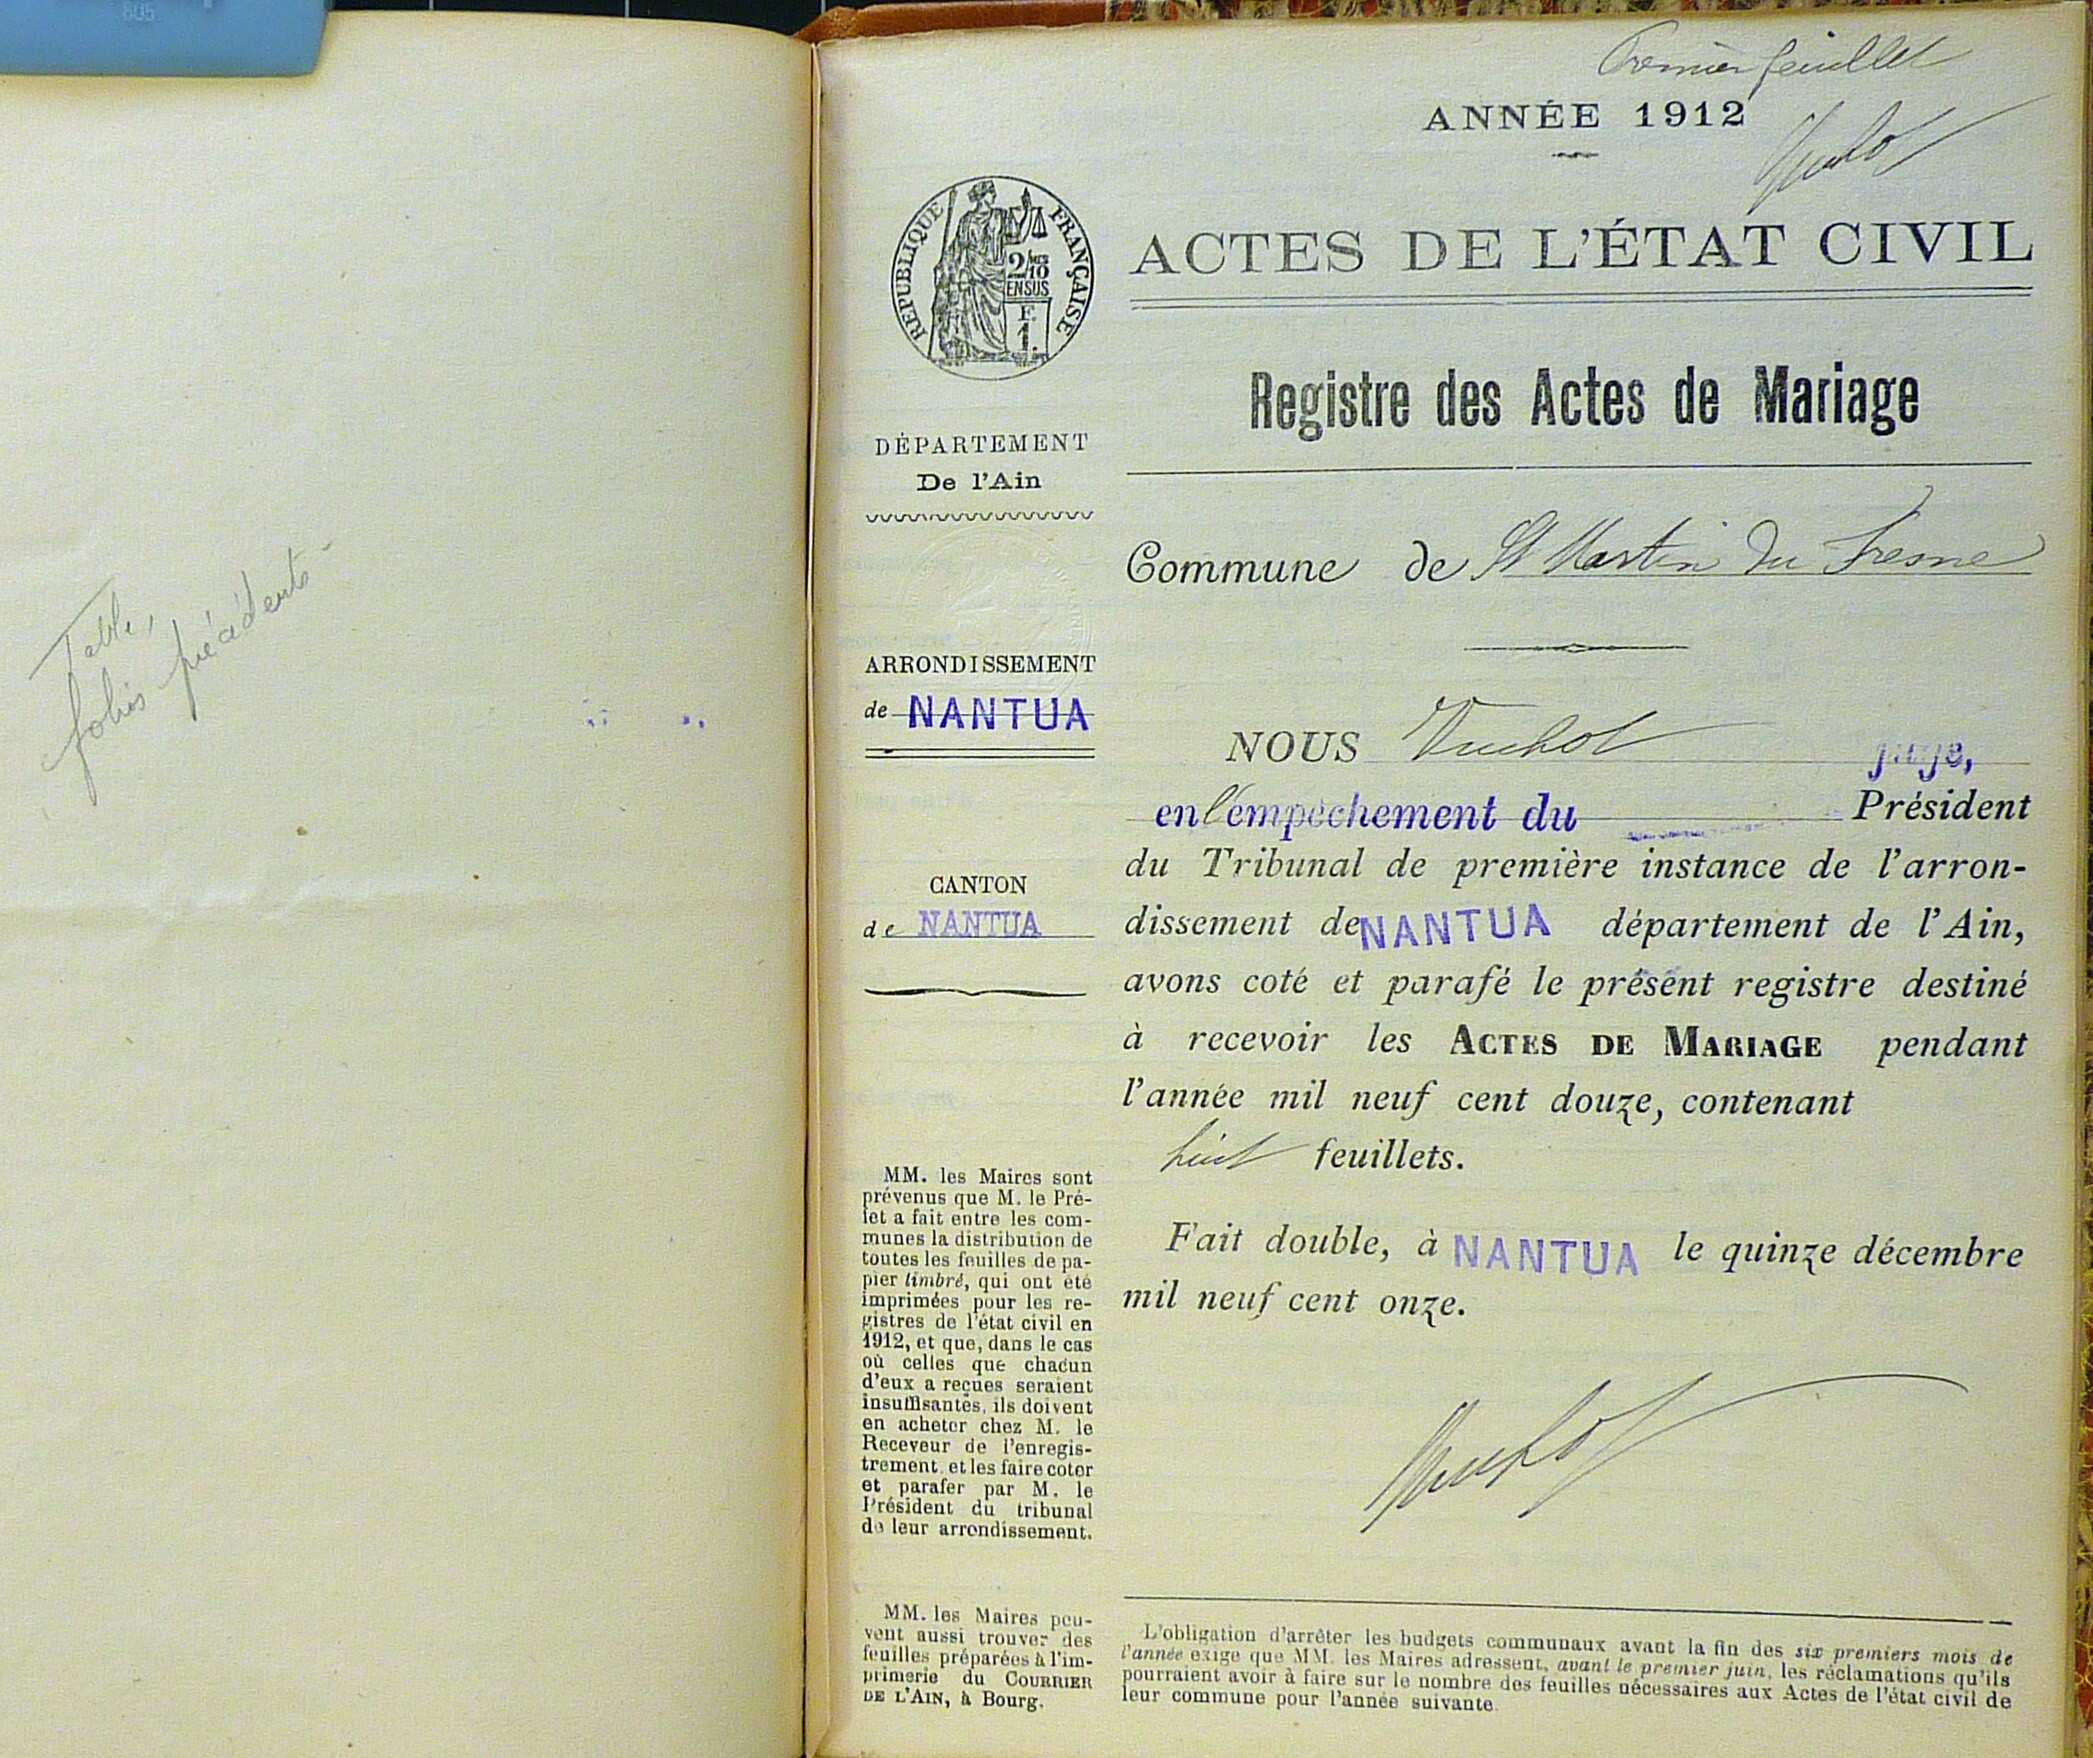 605
Table,
folios précédents -
Premier feuillet
ANNÉE 1912
RÉPUBLIQUE FRANÇAISE
2/10
EN SUS
F.
1.
ACTES DE L'ÉTAT CIVIL
Registre des Actes de Mariage
DÉPARTEMENT
De l'Ain
ARRONDISSEMENT
de NANTUA
CANTON
de NANTUA
MM. les Maires sont
prévenus que M. le Pré-
fet a fait entre les com-
munes la distribution de
toutes les feuilles de pa-
pier timbré, qui ont été
imprimées pour les re-
gistres de l'état civil en
1912, et que, dans le cas
où celles que chacun
d'eux a reçues seraient
insuffisantes, ils doivent
en acheter chez M. le
Receveur de l'enregis-
trement, et les faire coter
et parafer par M. le
Président du tribunal
de leur arrondissement.
MM. les Maires peu-
vent aussi trouver des
feuilles préparées à l'im-
primerie du COURRIER
DE L'AIN, à Bourg.
Commune de St Martin du Fresne
NOUS juge,
en l'empêchement du Président
du Tribunal de première instance de l'arron-
dissement de NANTUA département de l'Ain,
avons coté et parafé le présent registre destiné
à recevoir les ACTES DE MARIAGE pendant
l'année mil neuf cent douze, contenant
huit feuillets.
Fait double, à NANTUA le quinze décembre
mil neuf cent onze.
L'obligation d'arrêter les budgets communaux avant la fin des six premiers mois de
l'année exige que MM. les Maires adressent, avant le premier juin, les réclamations qu'ils
pourraient avoir à faire sur le nombre des feuilles nécessaires aux Actes de l'état civil de
leur commune pour l'année suivante.